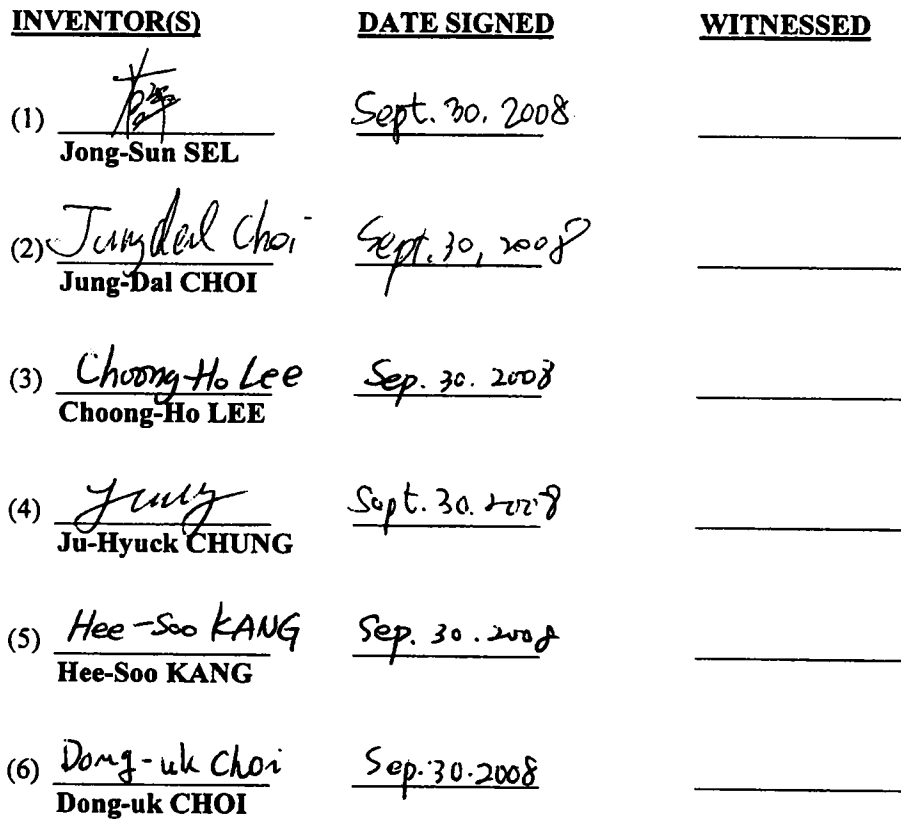 INVENTOR(S) DATE SIGNED WITNESSED
(1) Sept. 30. 2008
Jong-Sun SEL
(2) Jungdal Choi Sept. 30, 2008
Jung-Dal CHOI
(3) Choong-Ho Lee Sep. 30. 2008
Choong-Ho LEE
(4) Sept. 30. 2008
Ju-Hyuck CHUNG
(5) Hee-Soo KANG Sep. 30. 2008
Hee-Soo KANG
(6) Dong-uk Choi Sep. 30. 2008
Dong-uk CHOI